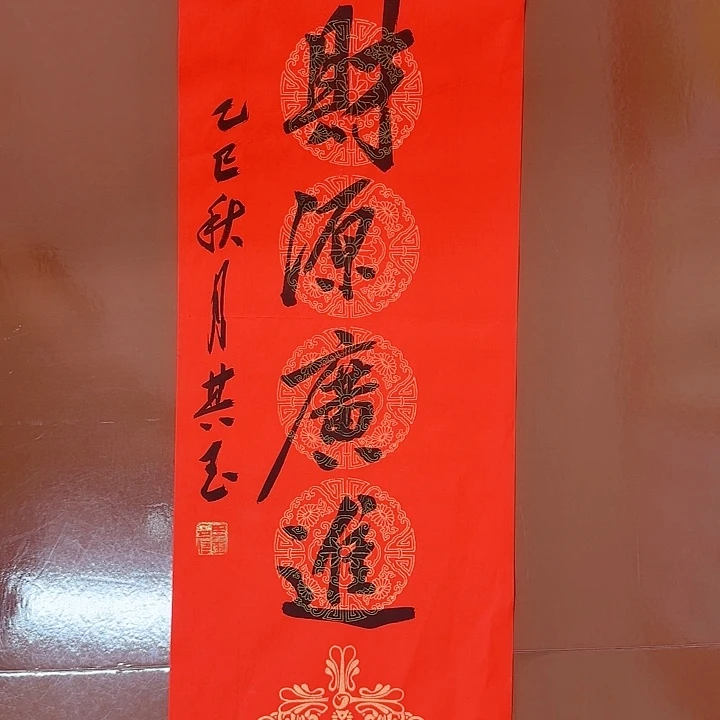 財源廣進
乙巳秋月其玉